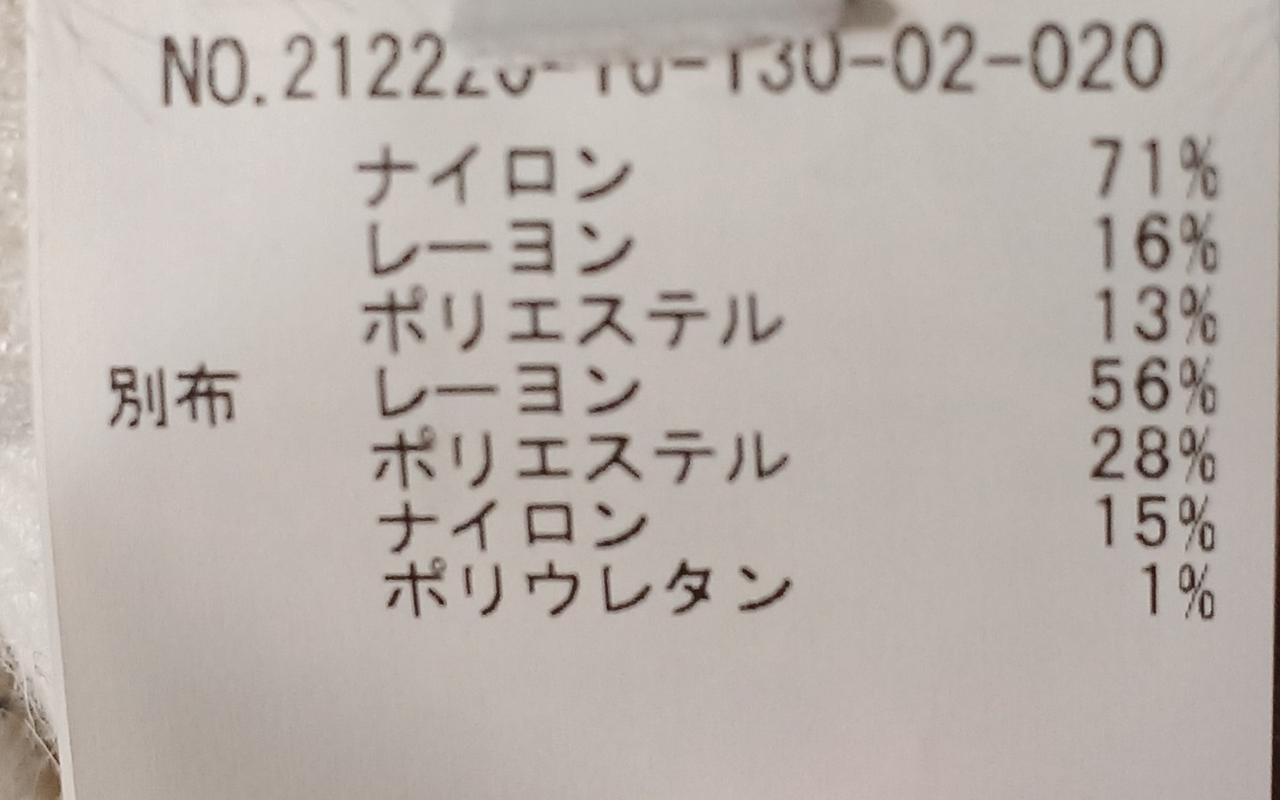 NO.212220-10-130-02-020
ナイロン 71%
レーヨン 16%
ポリエステル 13%
別布 レーヨン 56%
ポリエステル 28%
ナイロン 15%
ポリウレタン 1%